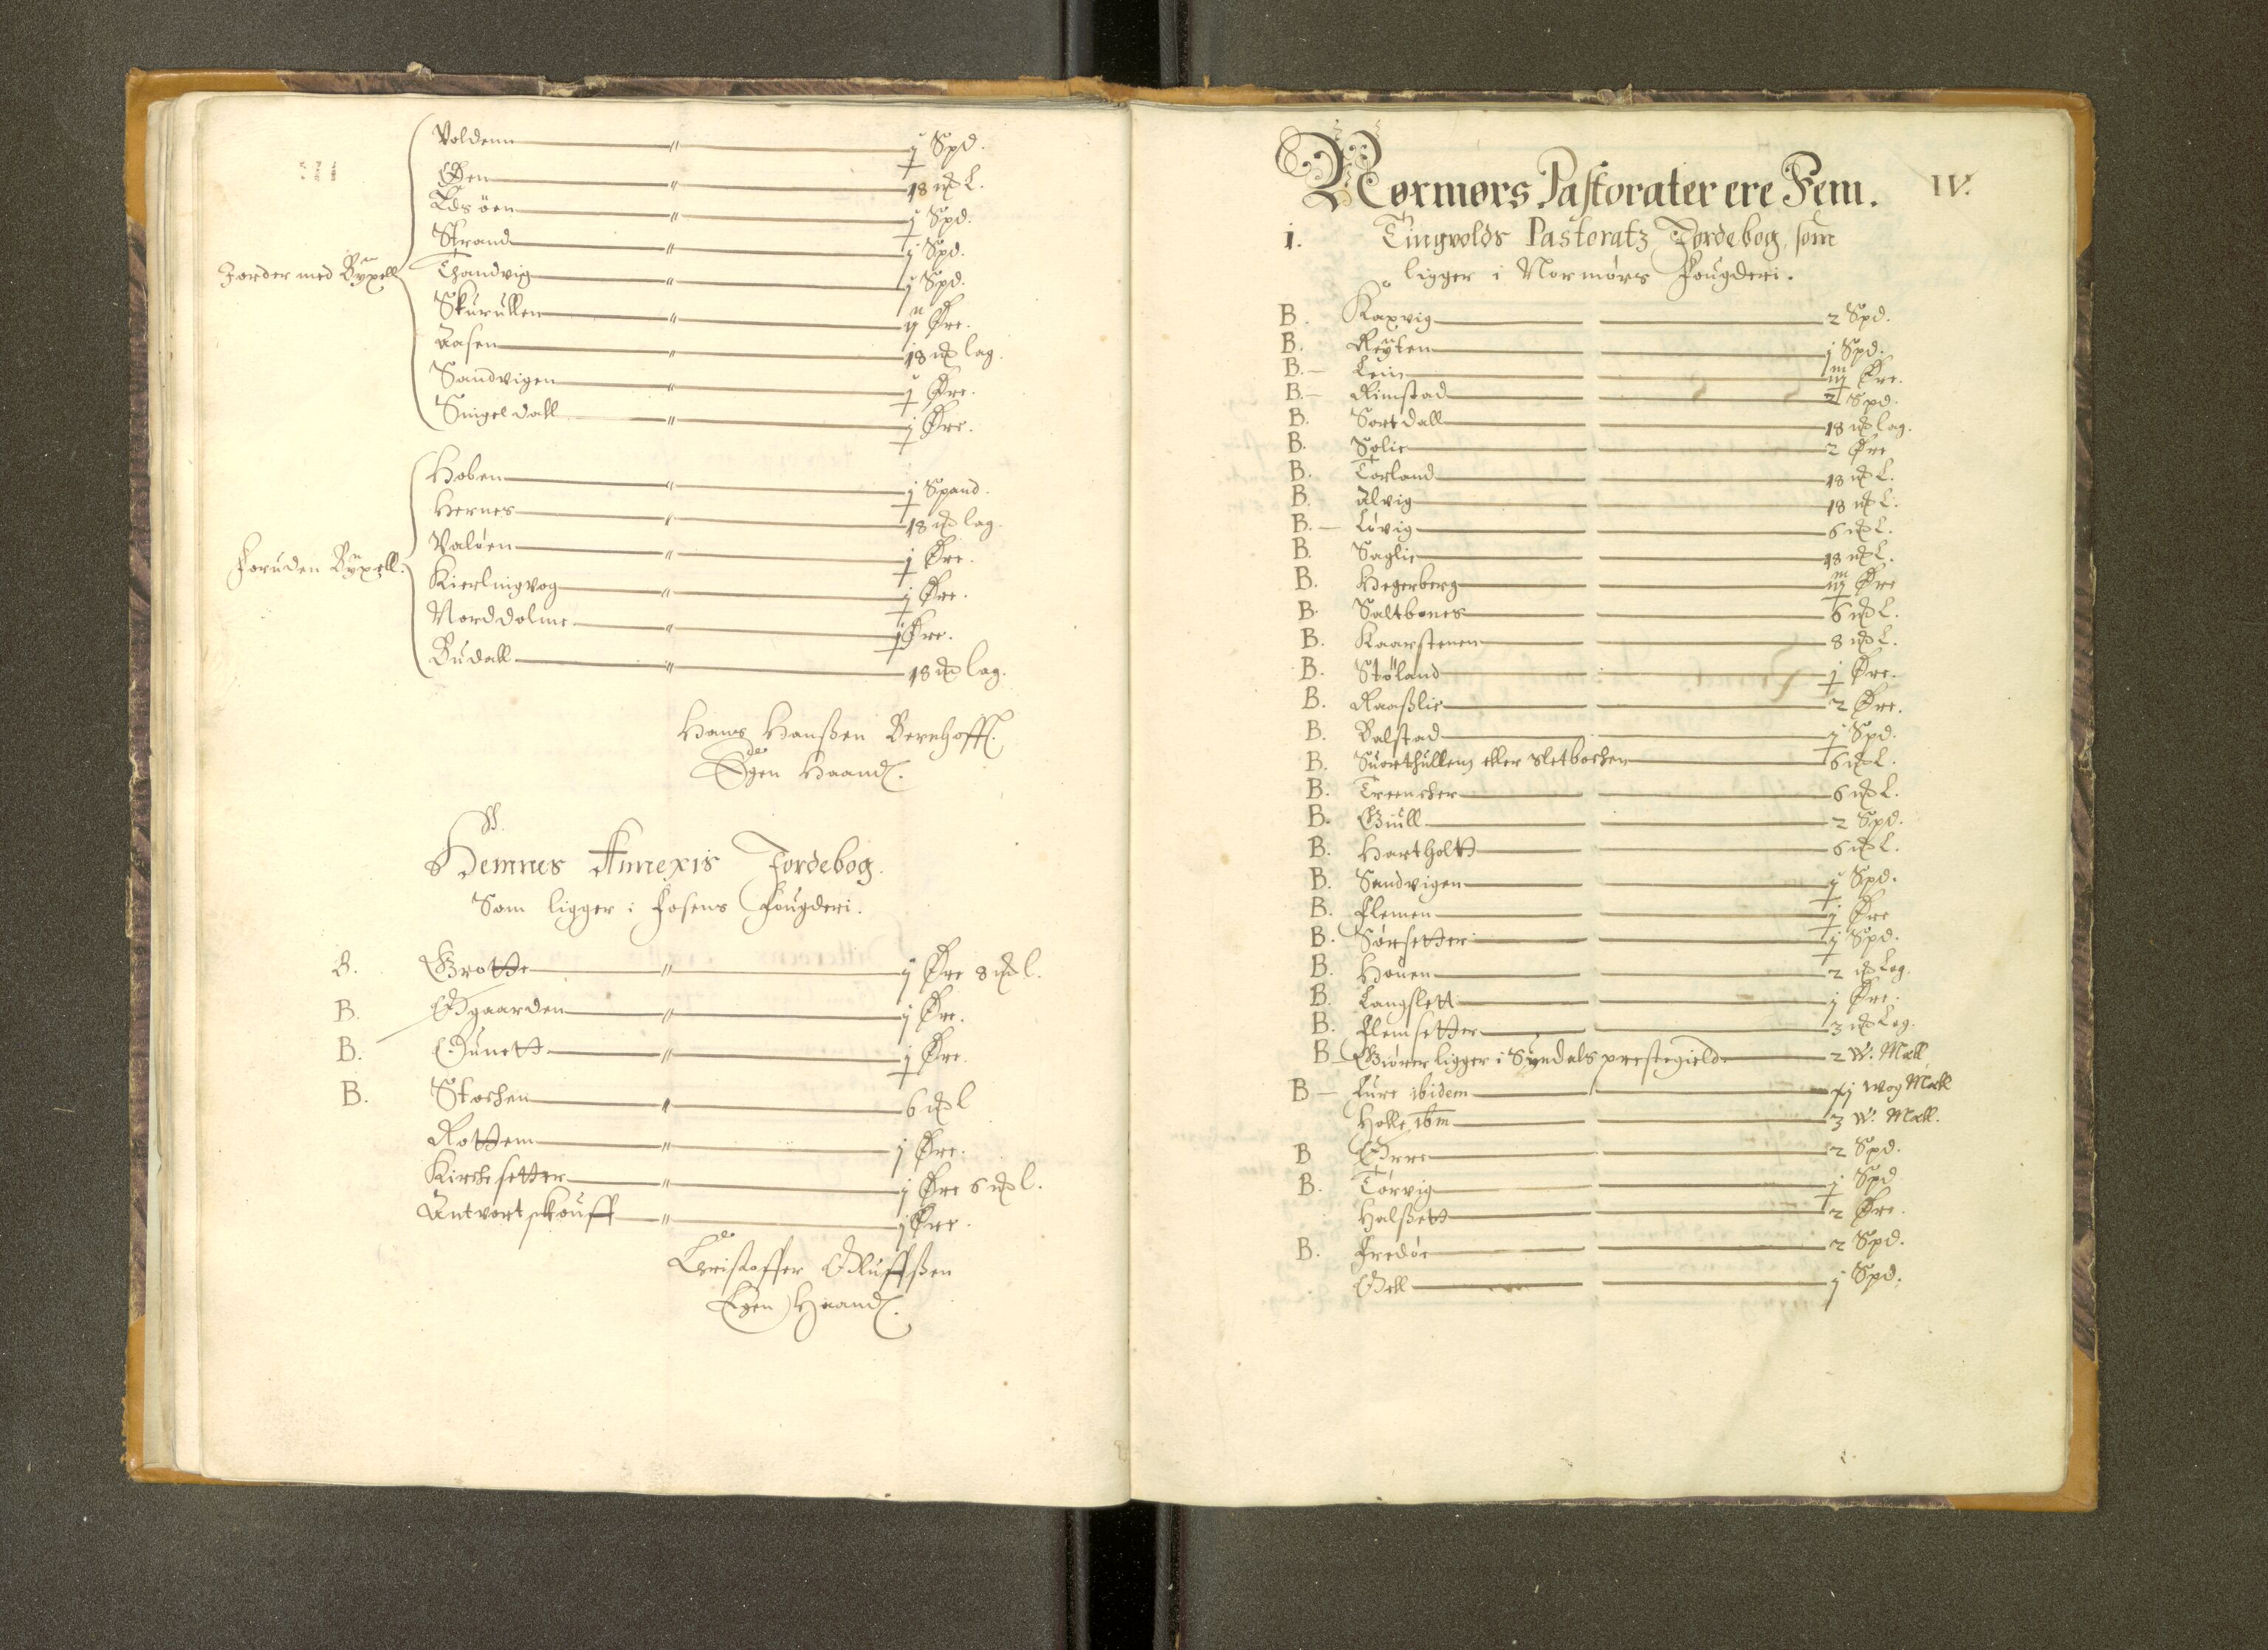 III
Jorder med Byxell
Voldenn " j Spd.
Øen " 18 mk L.
Edsøen " j Spd.
Strand " j Spd.
Thandvig " j Spd.
Skurullen " ij Øre.
Aasen " 18 mk lag.
Sandvigen " j Øre.
Singeldall " j Øre.
Foruden Byxell.
Hoben " j Spand.
Hernes " 18 mk lag.
Valøen " j Øre.
Kierlingvog " j Øre.
Norddolme " j Øre.
Budall " 18 mk lag.
Hans Hanßen Bernhofft
Egen Haand.
Hemnes Annexis Jordebog.
Som ligger i Fosens Fougderi.
B. Grotte " j Øre 8 mk l.
B. Øgaarden " j Øre.
B. Eunett " j Øre.
B. Stochen " 6 mk l
Rottem " j Øre.
Kirchsetter " j Øre 6 mk l.
Antvortskouff " j Øre.
Christoffer Oluffßen
Egen Haand.
Nørmørs Pastorater ere Fem. IV.
1. Tingvolds Pastoratz Jordebog, som
ligger i Normørs Fougderi.
B. Kaxvig 2 Spd.
B. Røyten j Spd.
B. Lein iij Øre.
B. Rimstad 2 Spd.
B. Sortdall 18 mk lag.
B. Solie 2 Øre
B. Torland 18 mk L.
B. Alvig 18 mk L.
B. Løvig 6 mk L.
B. Saglie 18 mk L.
B. Hegerberg iij Øre
B. Saltbones 6 mk L.
B. Kaarstenen 8 mk L.
B. Støland j Øre.
B. Raaßlie 2 Øre.
B. Balstad j Spd.
B. Suorthullen eller Sletbachen 6 mk L.
B. Treencher 6 mk L.
B. Giull 2 Spd.
B. Hartholtt 6 mk L.
B. Sandvigen j Spd.
B. Flemen j Øre
B. Sørsetter j Spd.
B. Houen 2 mk Lag.
B. Langslett j Øre.
B. Flemsetter 3 mk Lag.
B. Giører ligger i Syndals prestegield. 2 W. Mæll
B Lure ibidem xj wog Mæll
Holle ibm 3 W. Mæll.
B Ørre 2 Spd.
B. Torvig j Spd
Halßett 2 Øre.
B. Fredøe 2 Spd.
Bell j Spd.